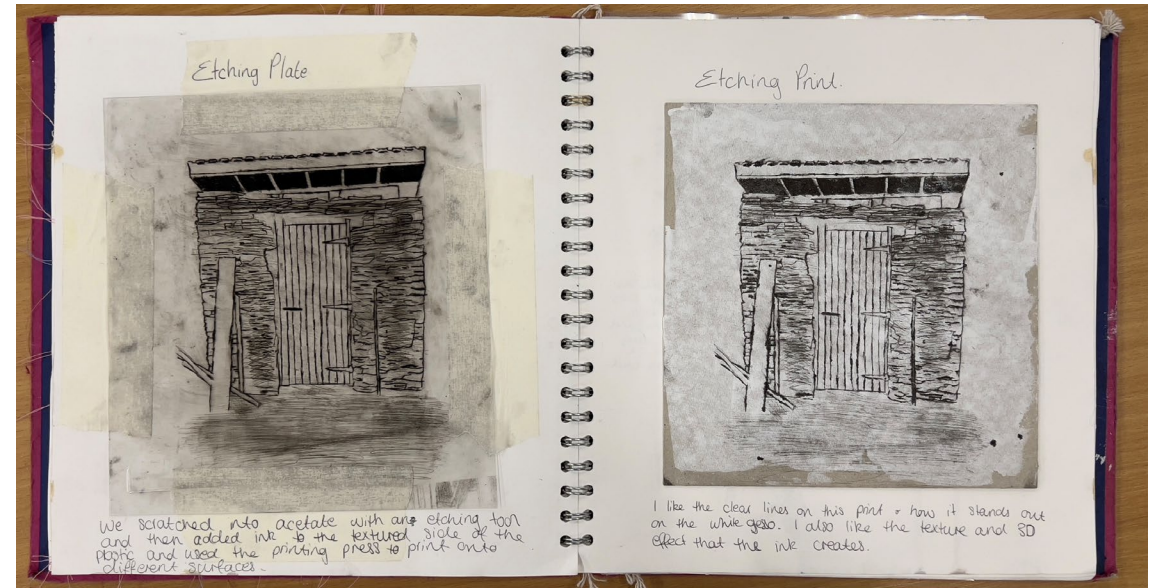 Etching Plate
We scratched into acetate with an etching tool
and then added ink to the textured side of the
plastic and used the printing press to print onto
different surfaces.
Etching Print.
I like the clear lines on this print + how it stands out
on the white gesso. I also like the texture and 3D
effect that the ink creates.